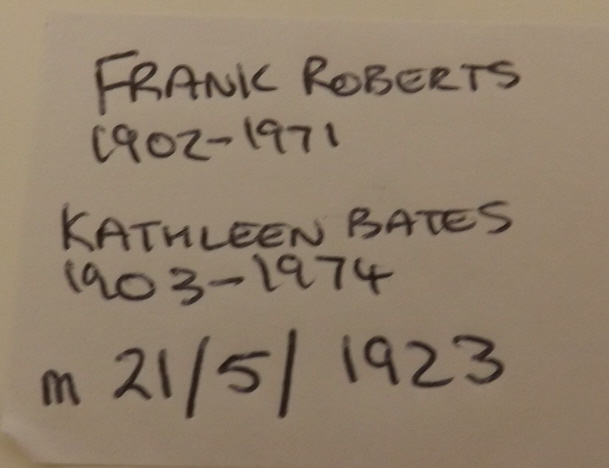 FRANK ROBERTS
1902-1971
KATHLEEN BATES
1903-1974
m 21/5/1923